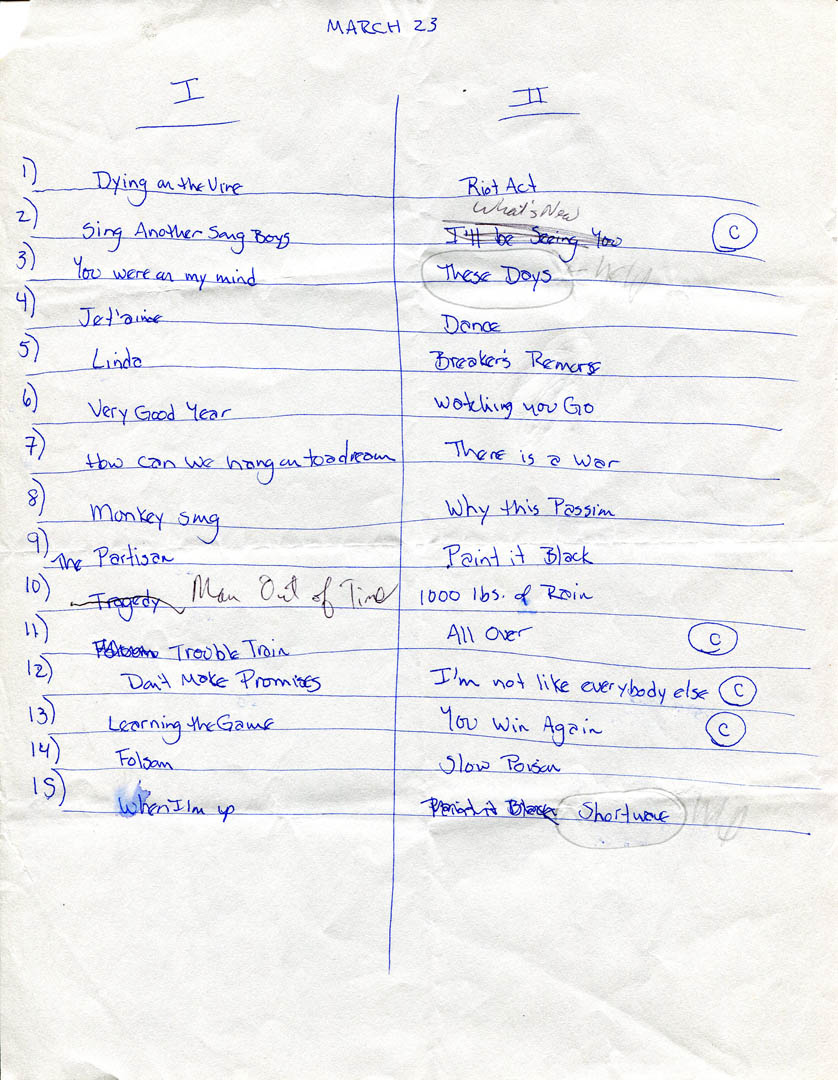 MARCH 23
I II
1) Dying on the Vine Riot Act
What's New
2) Sing Another Song Boys I'll be Seeing You C
3) You were on my mind These Days
4) Je t'aime Dance
5) Linda Breaker's Remorse
6) Very Good Year Watching you Go
7) How can we hang on to a dream There is a war
8) Monkey song Why this Passion
9) The Partisan Paint it Black
10) Tragedy Man Out of Time 1000 lbs. of Rain
11) Folsom Trouble Train All Over C
12) Don't Make Promises I'm not like everybody else C
13) Learning the Game You Win Again C
14) Folsom Slow Poison
15) When I'm up Paint it Black Shortwave